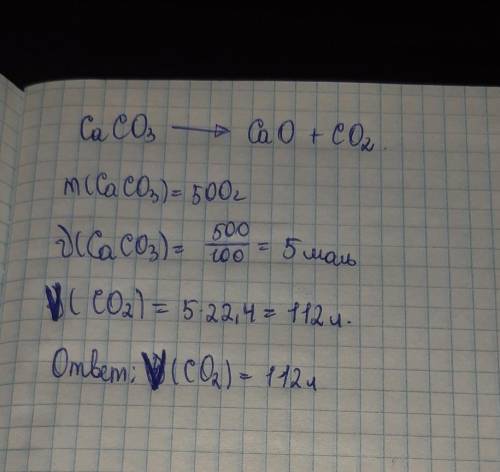 CaCO₃ → CaO + CO₂.
m(CaCO₃) = 500г
ν(CaCO₃) = 500/100 = 5 моль
V(CO₂) = 5·22,4 = 112 л.
Ответ: V(CO₂) = 112 л